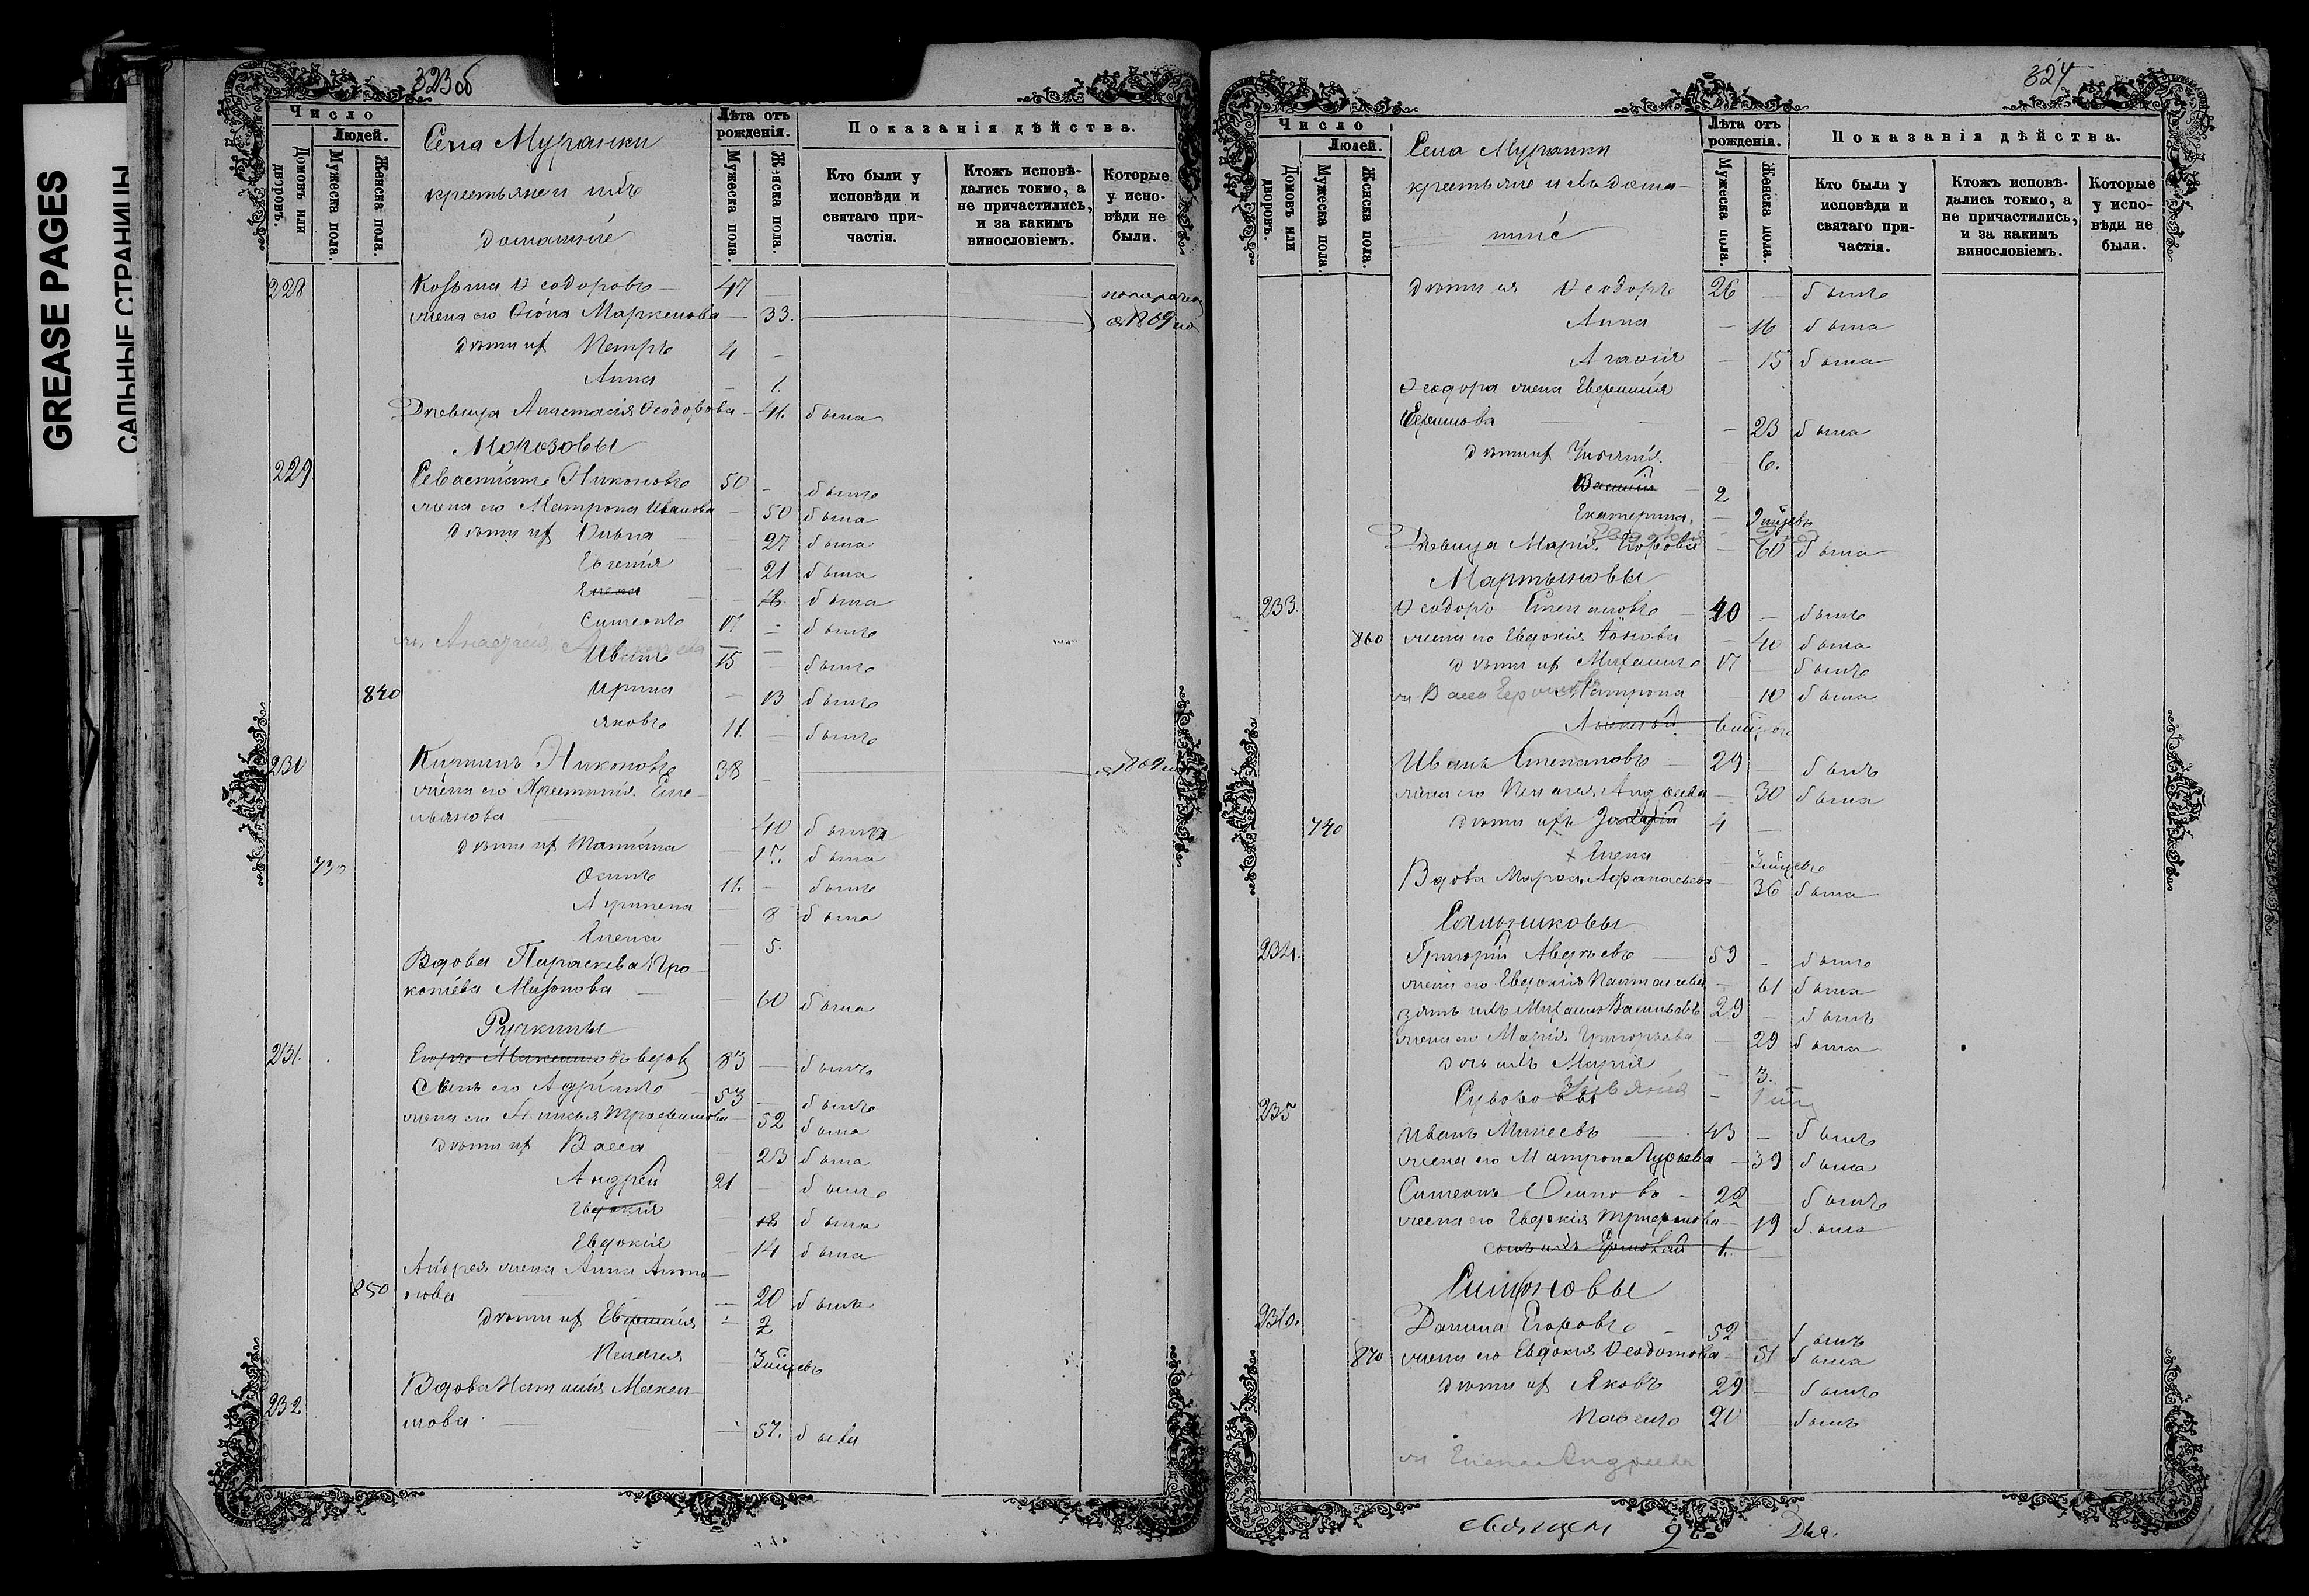 GREASE PAGES
САЛЬНЫЕ СТРАНИЦЫ
323об
Число
Людей.
Домовъ или дворовъ.
Мужеска пола.
Женска пола.
Села Муранки
крестьяне и ихъ
домашніе
Лѣта отъ рожденія.
Мужеска пола.
Женска пола.
Показанія дѣйства.
Кто были у исповѣди и святаго причастія.
Ктожъ исповѣдались токмо, а не причастились, и за какимъ винословіемъ.
Которые у исповѣди не были.
228 Козьма Ѳеодоровъ 47
жена его Маркелова 33. 1869
дѣти их Петръ 4
Анна 1.
Дѣвица Анастасія Ѳеодорова 41. была
Морозовы
229 Севастіанъ Никоновъ 50 былъ
жена его Матрона Иванова 50 была
дѣти их 27 была
Евгенія 21 была
Елена 18 была
Симеонъ 17. былъ
Иванъ 15 былъ
840 Ирина 13 былъ
Яковъ 11. былъ
230 Кириллъ Никоновъ 38 1869
жена его Христина Еме-
льянова 40 была
дѣти их Татіана 17. была
730 Осипъ 11. былъ
Агрипена 8 была
Елена 5.
Вдова Параскева Про-
копіева 60 была
Ручкины
231. Егоръ вдов 83 былъ
Сынъ его Адріанъ 53 былъ
жена его Трофимова 52 была
дѣти их Васса 23 была
Андрей 21 былъ
Евдокія 18 была
Евдокія 14 была
Андрея жена Анна
850 20 былъ
дѣти их Евфимія 2
Пелагея 3 мѣсцевъ
232 Вдова Наталія Макси-
мова 57. была
324
Число
Людей.
Домовъ или дворовъ.
Мужеска пола.
Женска пола.
Села Муранки
крестьяне и ихъ дома-
шніе
Лѣта отъ рожденія.
Мужеска пола.
Женска пола.
Показанія дѣйства.
Кто были у исповѣди и святаго причастія.
Ктожъ исповѣдались токмо, а не причастились, и за какимъ винословіемъ.
Которые у исповѣди не были.
дѣти ея Ѳеодоръ 26 былъ
Анна 16 была
Агафія 15 была
Ѳеодора жена Евфимія
Ефимова 23 была
дѣти их 6.
Василій 2
Екатерина
Дѣвица Марія Егорова 60 была
Мартыновы
233. Ѳеодоръ Степановъ 40 былъ
860 жена его Евдокія 40 была
дѣти их Михаилъ 17 былъ
Матрона 10 была
Алексѣй
Иванъ Степановъ 29 былъ
жена его Пелагея Андреева 30 была
740 дѣти ихъ Захарій 4
+ Елена 3 мѣсцевъ
Вдова Марѳа Афанасьева 36 была
Сальниковы
234. Григорій Авдѣевъ 59 былъ
жена его Евдокія 61 была
зять ихъ Михаилъ Васильевъ 29 былъ
жена его Марія Григорьева 29 была
дочь ихъ Марія 3.
235 Суворовы
Иванъ Минеевъ 43 былъ
жена его Матрона Гурьева 39 была
Симеонъ Осиповъ 22 былъ
жена его Евдокія 19 была
сынъ ихъ Ермолай 1.
Симоновы
236. Данила Егоровъ 52 былъ
870 жена его Евдокия Ѳеодотова 51 была
дѣти их Яковъ 29 былъ
Павелъ 20 былъ
ж Елена Андреева
священ
Дья.